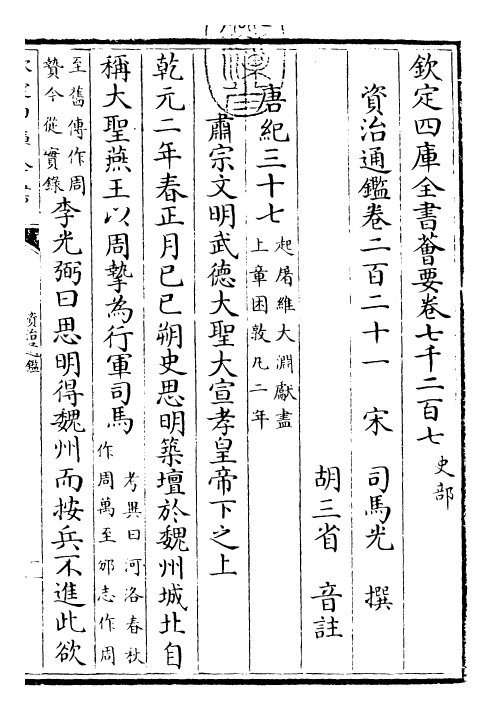 欽定四庫全書薈要卷七千二百七 史部
資治通鑑卷二百二十一 宋 司馬光 撰
胡三省 音註
唐紀三十七 起屠維大淵獻盡上章困敦凡二年
肅宗文明武德大聖大宣孝皇帝下之上
乾元二年春正月己巳朔史思明築壇於魏州城北自
稱大聖燕王以周摯為行軍司馬 考異曰河洛春秋作周萬至邠志作周
至舊傳作周贄今從實錄 李光弼曰思明得魏州而按兵不進此欲
資治通鑑